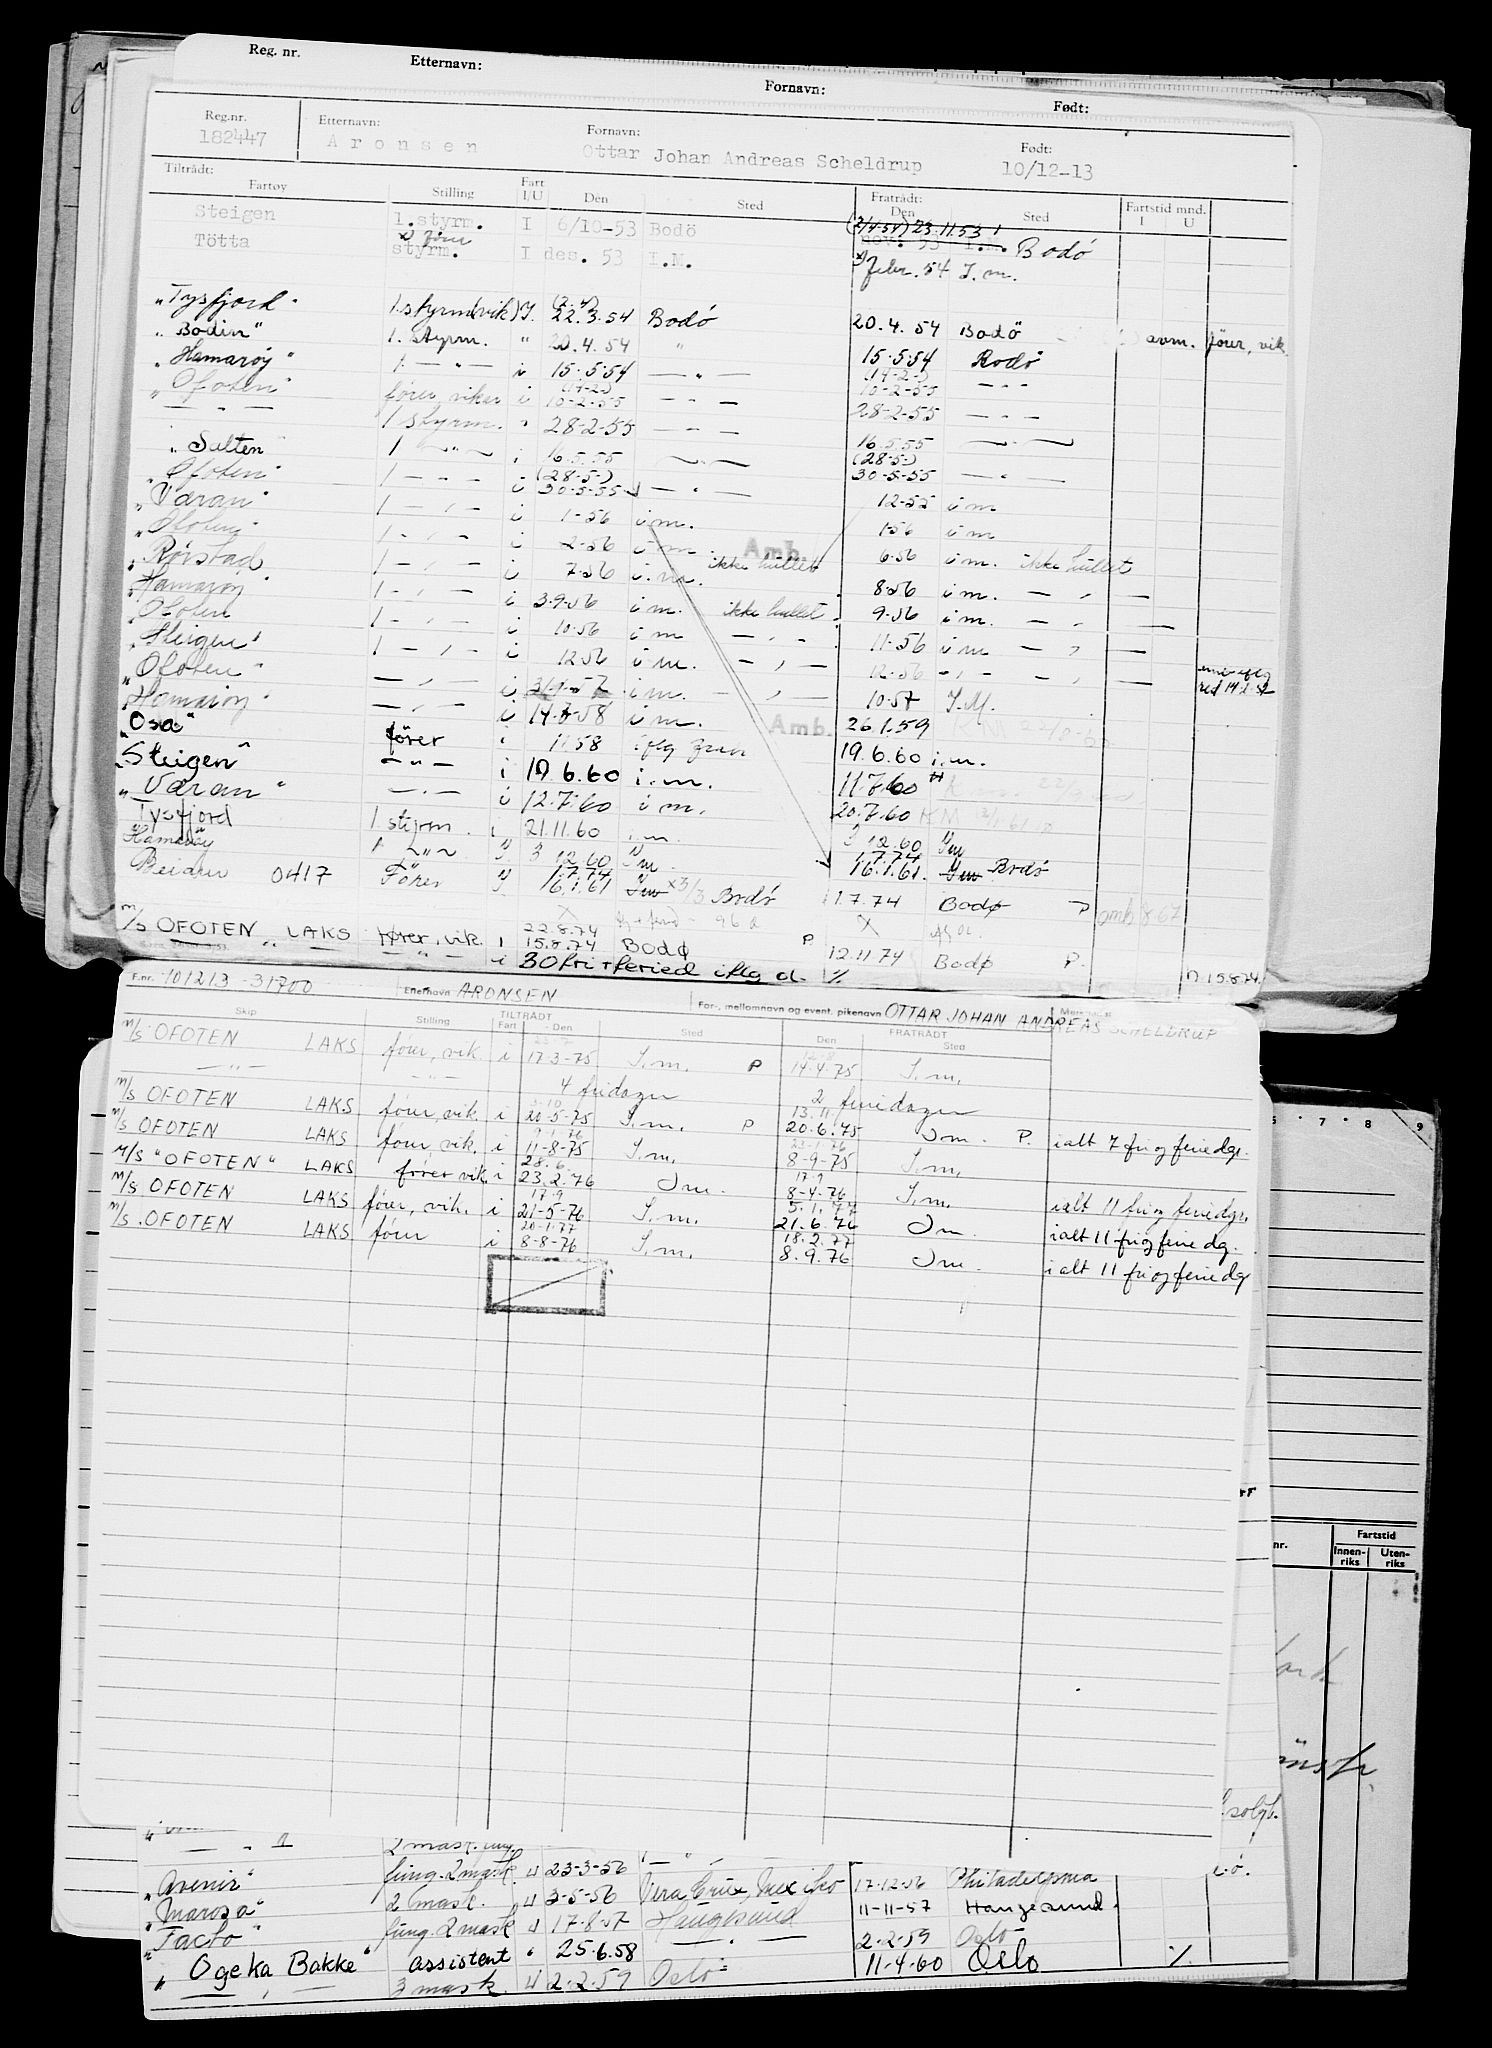 Reg. nr. Etternavn: Fornavn: Født:
Reg.nr. Etternavn: Fornavn: Født:
182447 Aronsen Ottar Johan Andreas Scheldrup 10/12-13
Tiltrådt: Fratrådt:
Fartøy Stilling Fart I/U Den Sted Den Sted Fartstid mnd. I U
Steigen 1.styrm. I 6/10-53 Bodö (2/1-54) 23.11.53 nov. 53 I.M. Bodö
Tötta x) fører styrm. I des. 53 I.M. x) febr. 54 I.m.
"Tysfjord" 1.styrm(vik) I. 22.3.54 Bodö 20.4.54 Bodö avm. fører, vik.
"Bodin" 1. styrm. " 20.4.54 " 15.5.54 Bodö
"Hamarøy" 1. — " — i 15.5.54 — " — (14-2-) 10-2-55 — " —
"Ofoten" fører, vikar i (14-2-) 10-2-55 — " — 28-2-55 — " —
— " — 1 styrm. " 28-2-55 — " — 16.5.55 — " —
"Salten" 1 — " — i 16.5.55 — " — (28-5-) 30-5-55 — " —
"Ofoten" 1 — " — i (28-5-) 30-5-55 — " — 12-55 i m
"Væran" 1 — " — i 1-56 i m. 1-56 i m
"Ofoten" 1 — " — i 2-56 i m. Amb. 6-56 i m. ikke hullet
"Rørstad 1 — " — i 7-56 i.m. ikke hullet 8-56 i m. — " —
"Hamarøy 1 — " — i 3-9-56 i m. ikke hullet 9-56 i m. — " —
"Ofoten 1 — " — i 10-56 i m — " — 11-56 i m — " —
"Steigen" 1 — " — i 12-56 i m. — " — 12-56 — " — — " —
"Ofoten" — " — i 3/1-57 i m. — " — 10-57 I.M.
"Hamarøy" — " — i 14-7-58 i m. Amb. 26.1.59
"Osa" fører i 11 58 iflg 19.6.60 i.m.
"Steigen" — " — i 19.6.60 i.m. 11.7.60
"Væran" — " — i 12.7.60 i m. 20.7.60 KM
Tysfjord 1 styrm. i 21.11.60 i.m. 3 12.60 Im
Hamarøy 1 — " — I. 3 12.60 Im 1.7.74 16.1.61. Im Bodö
Beiarn 0417 Fører I 1.7.74 16.1.61 Im x 3/3 Bodö 1.7.74 Bodø P amb 8.67
m/s OFOTEN LAKS fører, vik. i 22.8.74 15.8.74 Bodø P 12.11.74 Bodø P.
— " — — " — i 30 fri + feried iflg d. % 15.8.74.
F.nr. 101213-31700 Etternavn ARONSEN For-, mellomnavn og event. pikenavn OTTAR JOHAN ANDREAS SCHELDRUP
Skip Stilling TILTRÅDT Fart Den Sted FRATRÅDT Den Sted
m/s OFOTEN LAKS fører, vik. i 17-3-75 I.m. P 14-4-75 I.m.
— " — — " — 4 fridager 2 feriedager
m/s OFOTEN LAKS fører, vik. i 20-5-75 I.m. P 13.11. 20.6.75 Im. P. ialt 7 fri og feriedgr.
m/s OFOTEN LAKS fører, vik. i 9.1.76 11-8-75 I.m. 23-1-76 8-9-75 I.m.
M/S "OFOTEN" LAKS fører vik i 28.6. 23.2.76 Im. 17.9 8-4-76 I.m. ialt 11 fri og feriedgr.
m/s OFOTEN LAKS fører, vik. i 17.9 21-5-76 I.m. 5.1.77 21.6.76 Im. ialt 11 fri og ferie dg.
m/s. OFOTEN LAKS fører i 20-1-77 8-8-76 I.m. 18.2.77 8.9.76 Im. ialt 11 fri og ferie dg
6 · 7 · 8 9
nr. Fartstid
Innen-riks Uten-riks
solgt.
— " — 2 mask.
"Avenir" fung. 2 mask. U 23-3-56 — " — 17-12-56 Philadelphia
"Marosa" 2 mask. U 3-5-56 Vera Cruz, Mexiko 11-11-57 Haugesund.
"Facto" fung. 2 mask U 17-8-57 Haugesund 2-2-59 Oslo
"Ogeka Bakke" assistent " 25-6.58 — " — 11-4-60 Oslo %
— " — 3 mask. U 2-2-59 Oslo